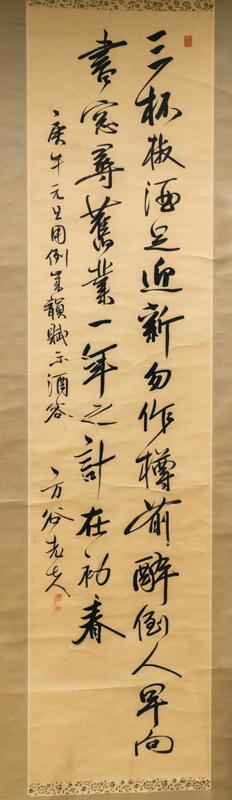 三杯椒酒足迎新勿作樽前醉倒人早向
書窓尋舊業一年之計在初春
庚午元旦用例年韻賦示酒客 方谷老人